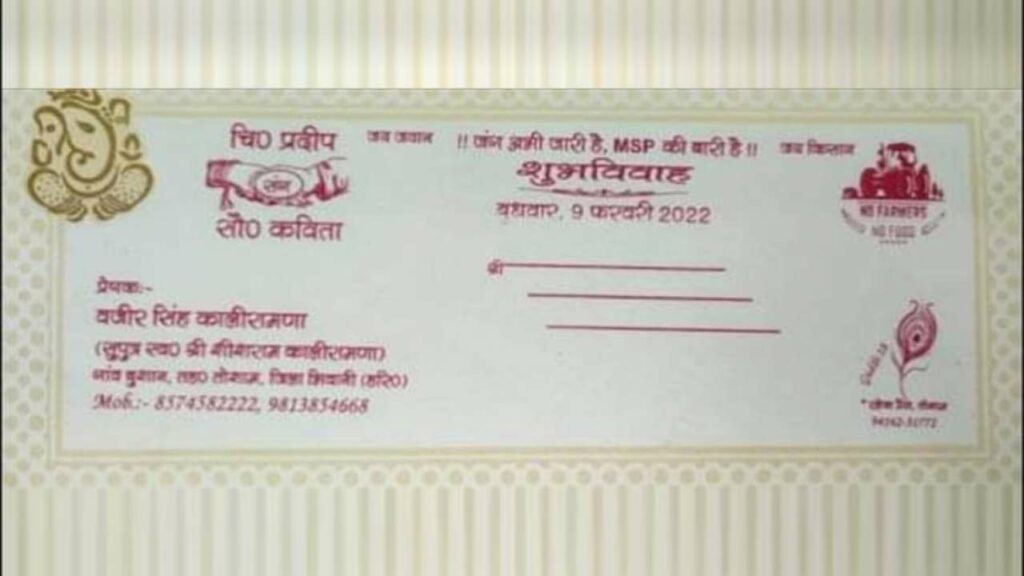 चि० प्रदीप
संग
सौ० कविता
जय जवान
!! जंग अभी जारी है, MSP की बारी है !!
जय किसान
शुभविवाह
बुधवार, 9 फरवरी 2022
श्री
NO FARMERS
NO FOOD
प्रेषक:-
वजीर सिंह
(सुपुत्र स्व० श्री
गांव दुसान, तह० तोशाम, जिला भिवानी (हरि०)
Mob.:- 8574582222, 9813854668
प्रैस, तोशाम
94162-51772